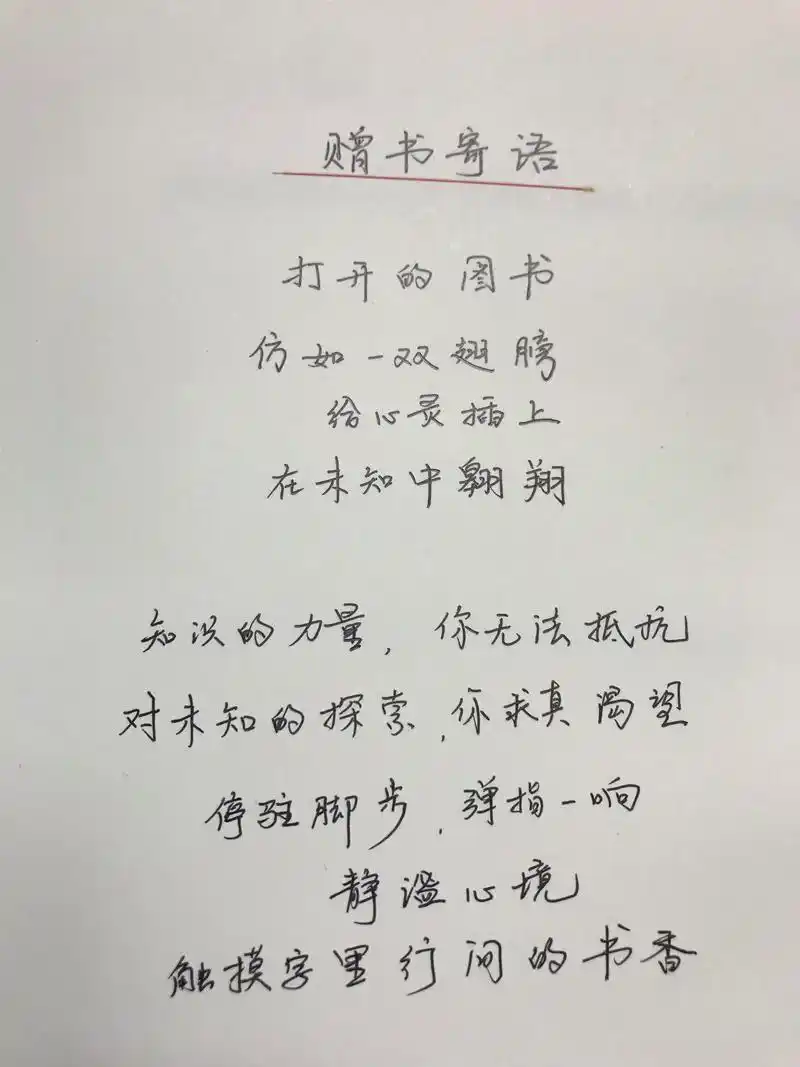 赠书寄语
打开的图书
仿如一双翅膀
给心灵插上
在未知中翱翔
知识的力量，你无法抵抗
对未知的探索，你求真渴望
停驻脚步，弹指一响
静谧心境
触摸字里行间的书香